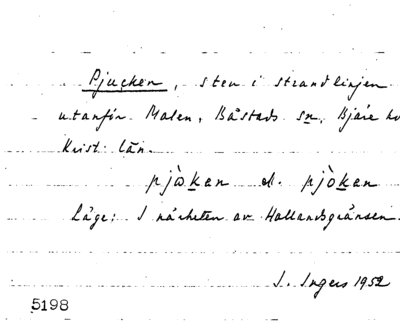 Pjucken, sten i strandlinjen
utanför Malen, Båstads sn, Bjäre
Krist. län.
pjòkan el. pjòkan
Läge: I närheten av Hallandsgränsen.
I. Ingers 1952
5198